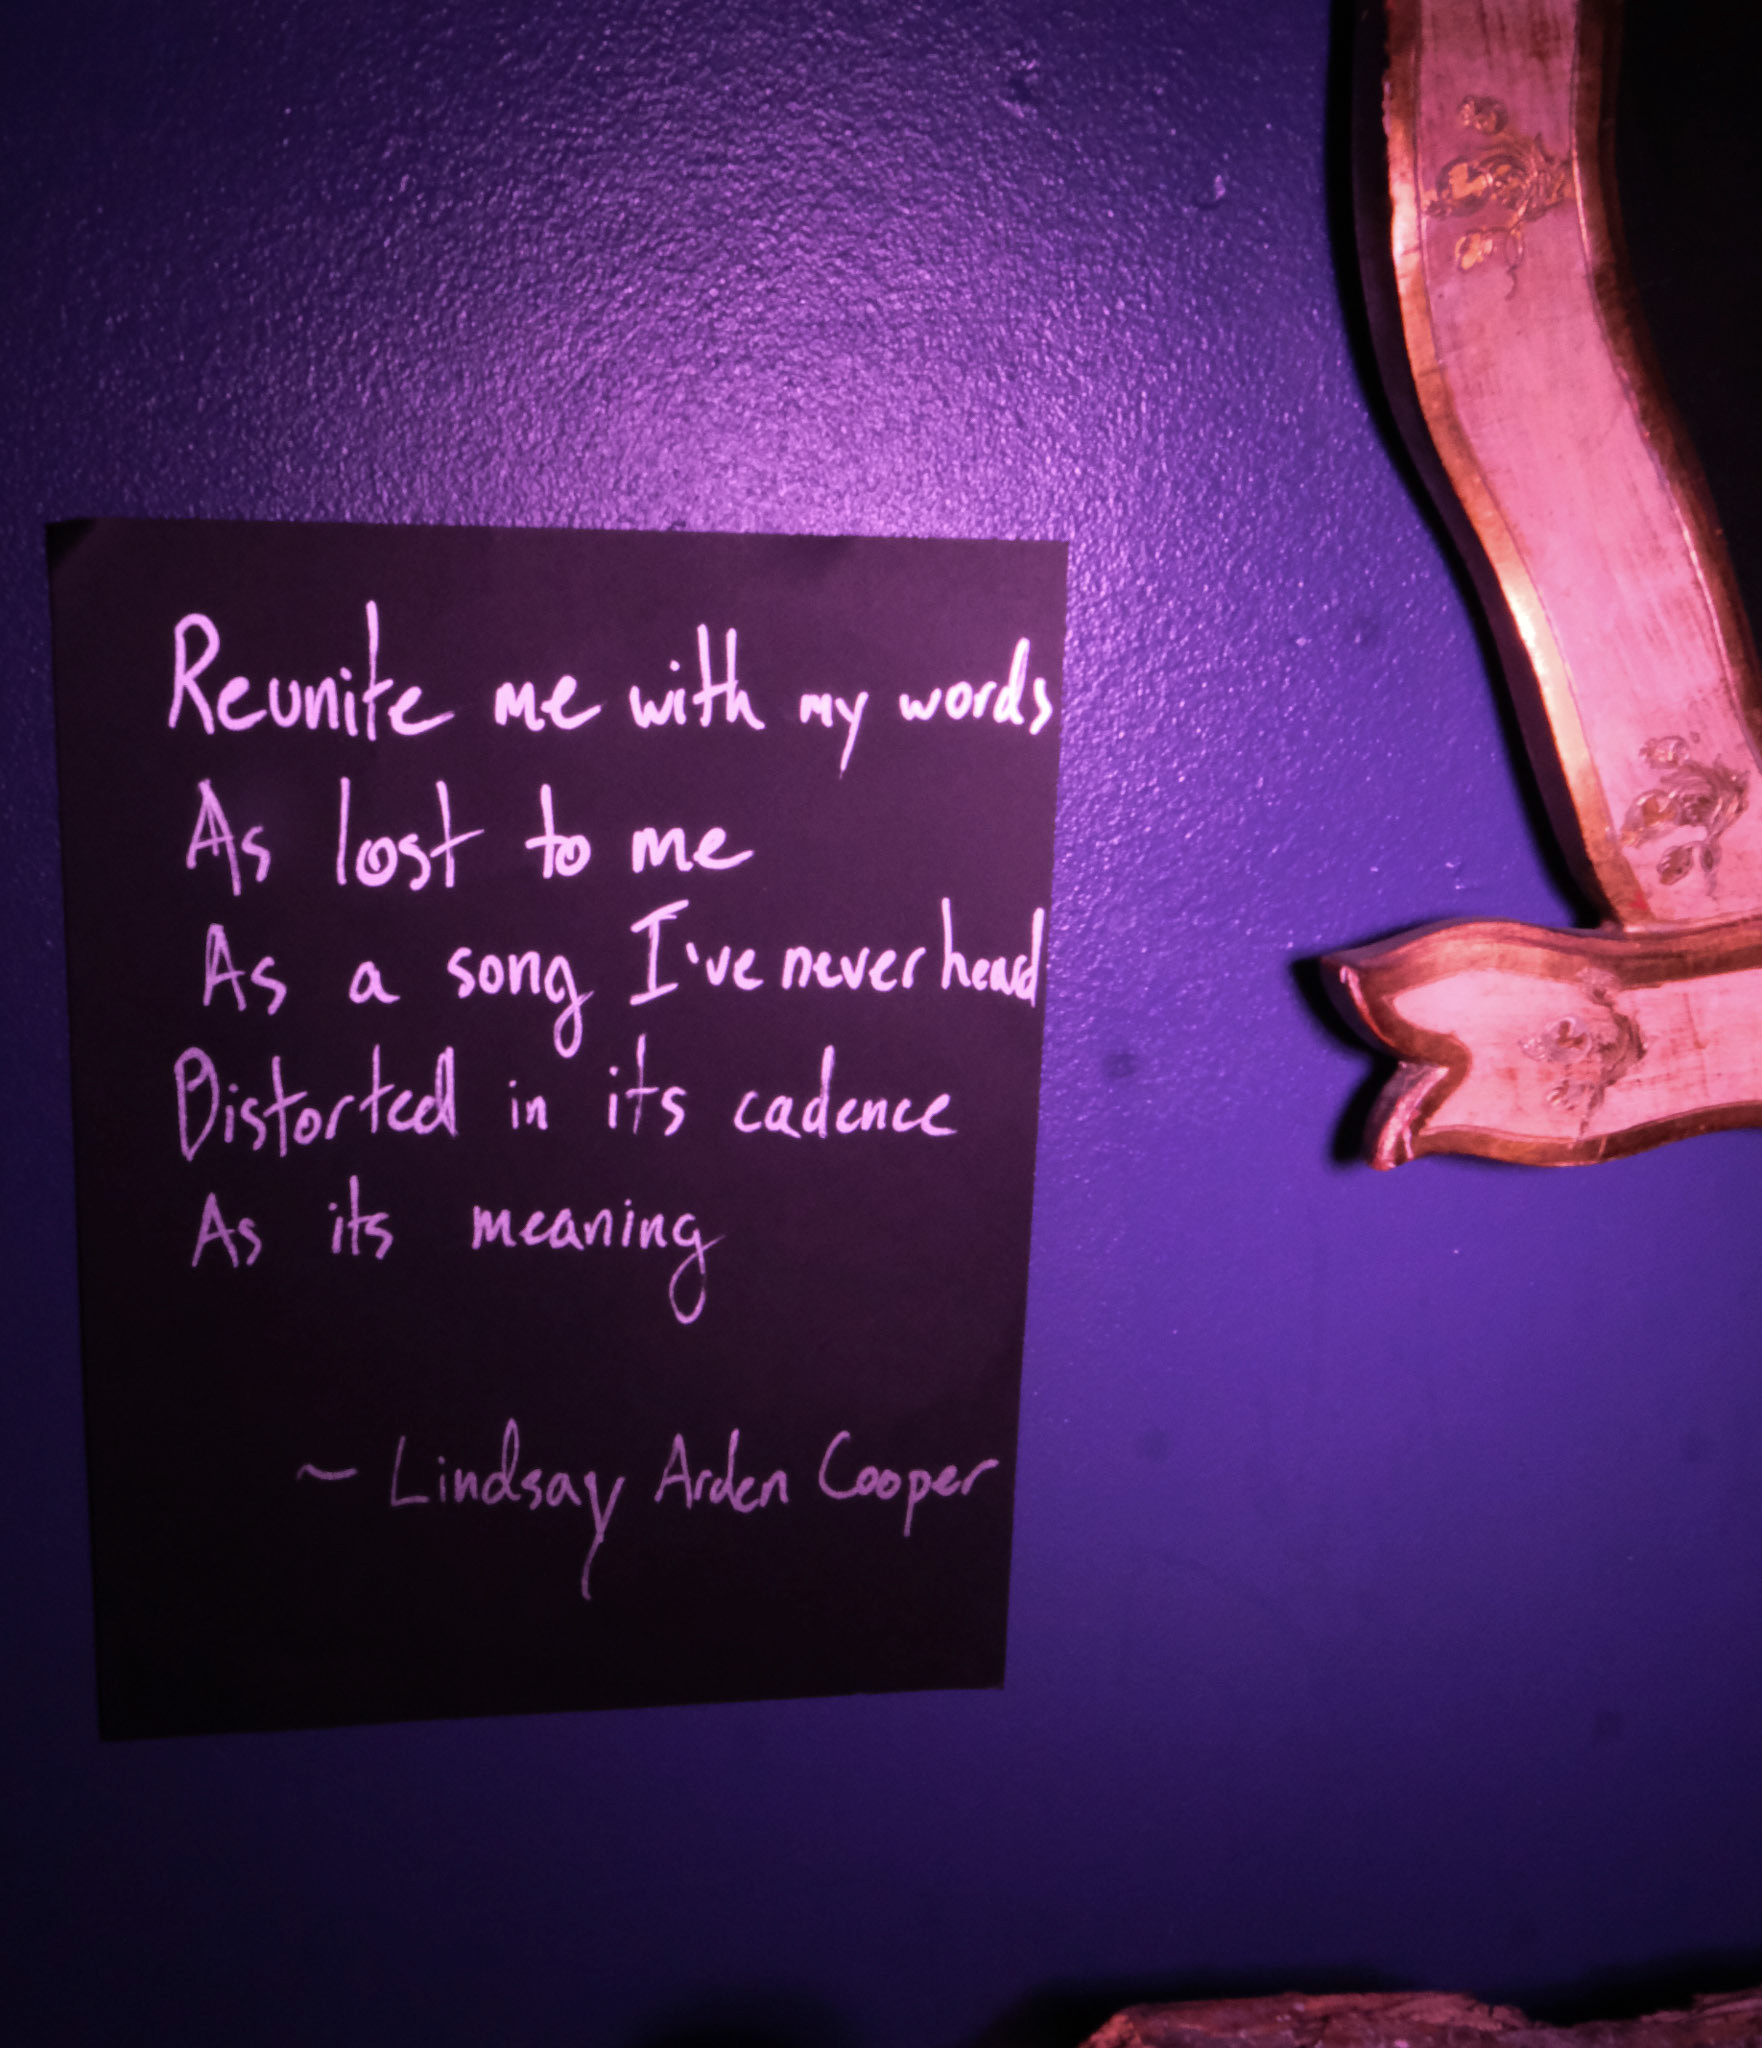 Reunite me with my words
As lost to me
As a song I've never heard
Distorted in its cadence
As its meaning
~ Lindsay Arden Cooper